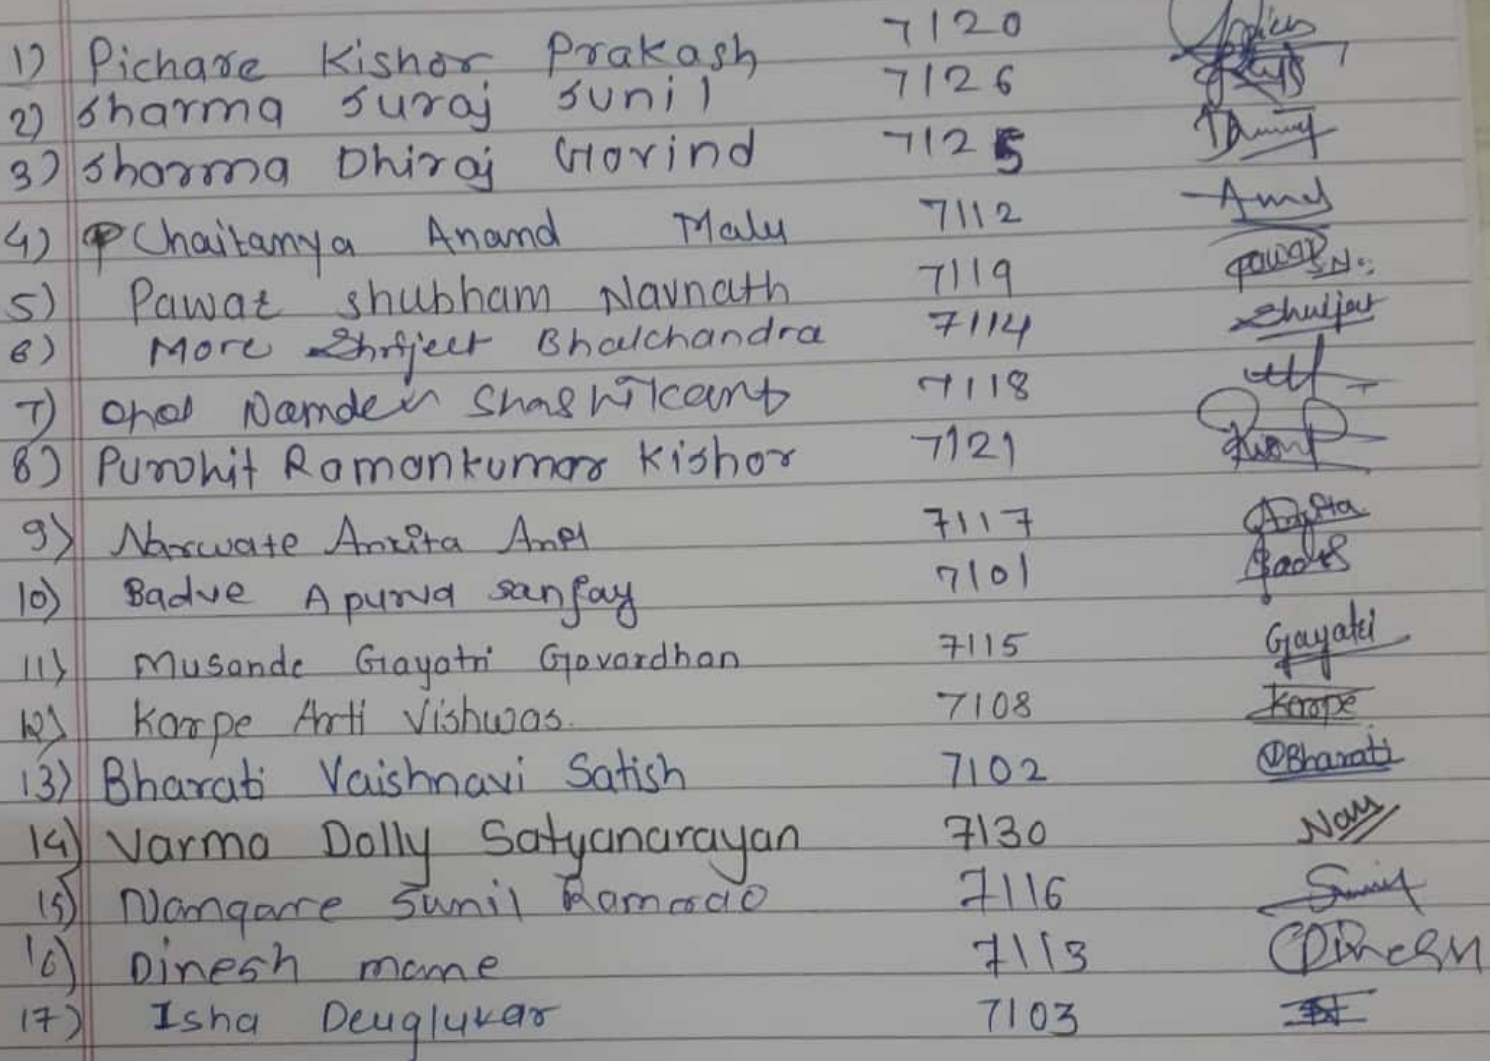 1) Pichare Kishor Prakash 7120
2) Sharma Suraj Sunil 7126
3) Sharma Dhiraj Govind 7125
4) Chaitanya Anand Malu 7112
5) Pawar Shubham Navnath 7119 Pawar S.N.
6) More Bhalchandra 7114
7) Ohol Namdev Shashikant 7118
8) Purohit Ramankumar Kishor 7121
9) Narwate Ankita Anil 7117 Ankita
10) Badve Apurva Sanjay 7101
11) Musande Gayatri Govardhan 7115 Gayatri
12) Karpe Arti Vishwas. 7108 Karpe
13) Bharati Vaishnavi Satish 7102 Bharati
14) Varma Dolly Satyanarayan 7130
15) Nangare Sunil Ramrao 7116
16) Dinesh mame 7113 Dinesh
17) Isha Deuglukar 7103